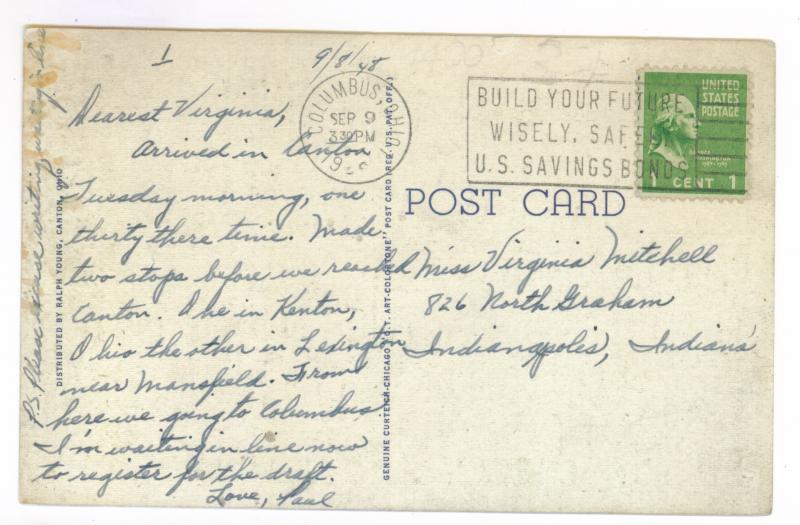 1
9/8/48
Dearest Virginia,
Arrived in Canton
Tuesday morning, one
thirty there time. Made
two stops before we reached
Canton. One in Kenton,
Ohio the other in Lexington
near Mansfield. From
here we going to Columbus
I'm waiting in line now
to register for the draft.
Love, Paul
P.S. Please excuse writing, waiting in line
DISTRIBUTED BY RALPH YOUNG, CANTON, OHIO
GENUINE CURTEICH-CHICAGO "C.T. ART-COLORTONE" POST CARD (REG. U.S. PAT. OFF.)
COLUMBUS, OHIO
SEP 9
330 PM
BUILD YOUR FUTURE
WISELY, SAFELY
U.S. SAVINGS BONDS
UNITED
STATES
POSTAGE
GEORGE
WASHINGTON
CENT 1
POST CARD
Miss Virginia Mitchell
826 North Graham
Indianapolis, Indiana